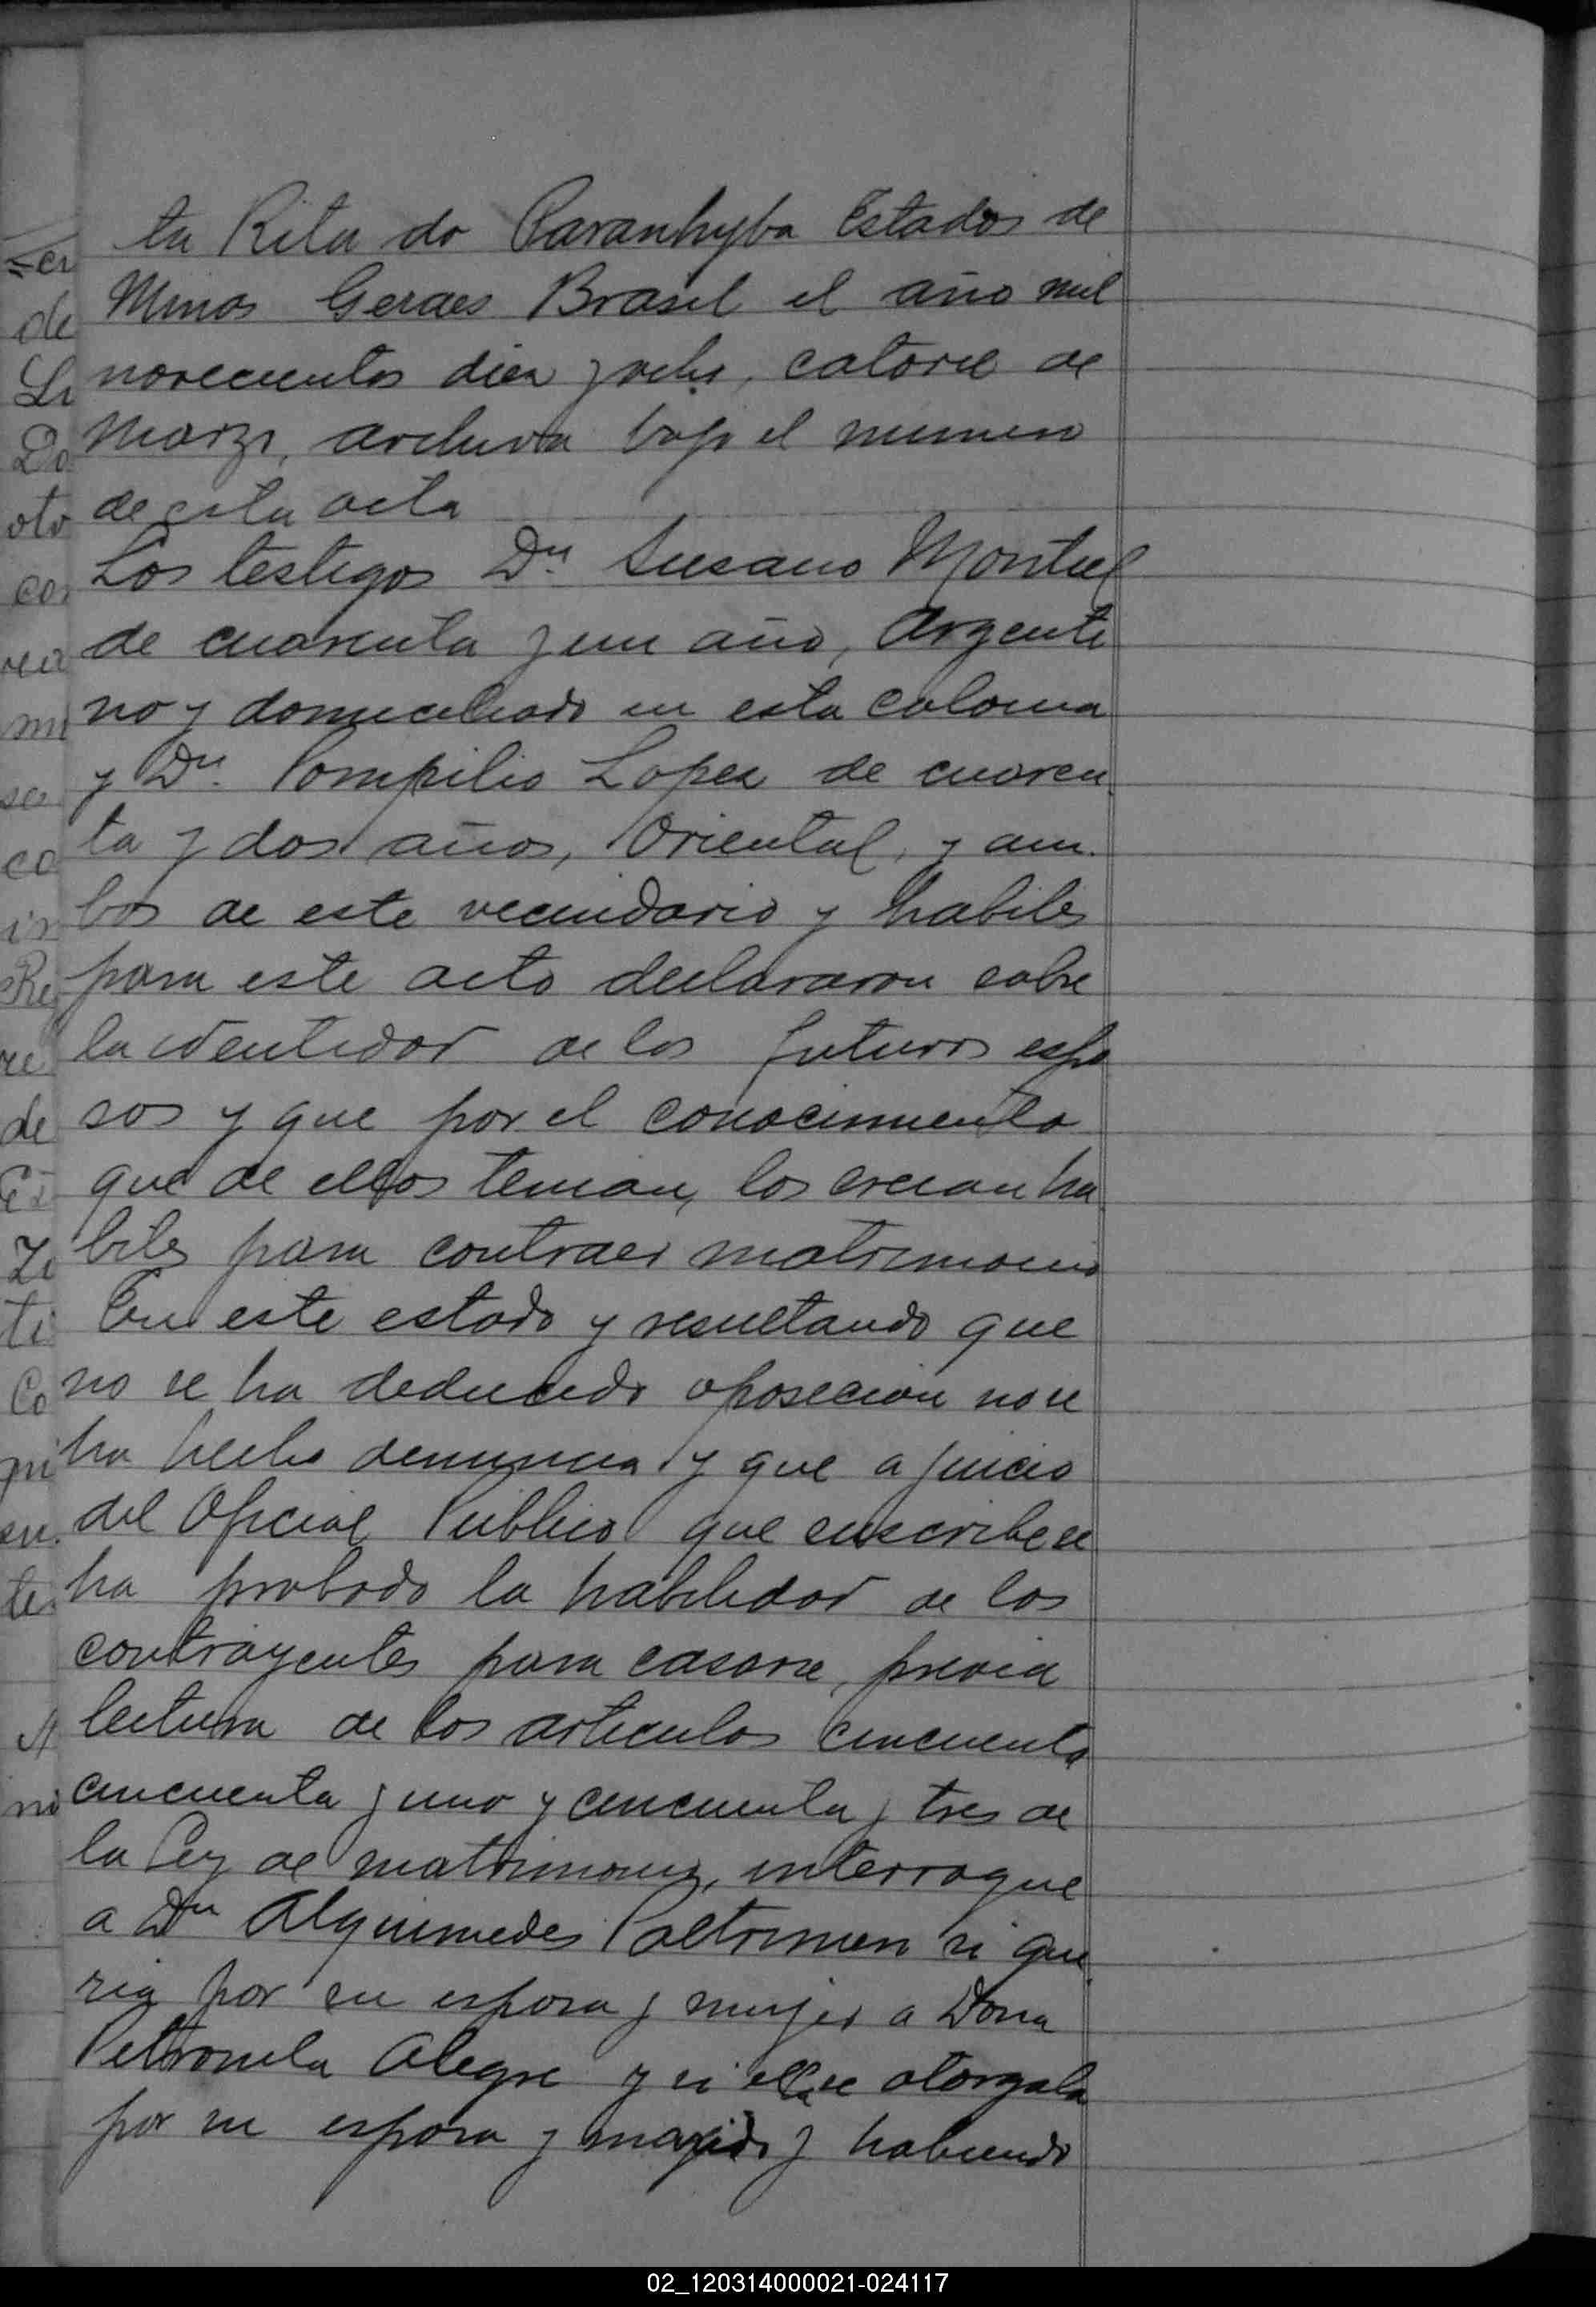 ta Rita do Paranhyba Estados de
Minas Geraes Brasil el año mil
novecientos diez y ocho, catorce de
Marzo, archiva bajo el numero
de esta acta
Los testigos Dn. Susano Montiel
de cuarenta y un año, Argenti
no y domiciliado en esta colonia
y Dn. Pompilio Lopez de cuaren
ta y dos años, Oriental, y am.
bos de este vecindario y habiles
para este acto declararon sobre
la identidad de los futuros espo
sos y que por el conocimiento
que de ellos tenian, los creian ha
biles para contraer matrimonio
En este estado y resultando que
no se ha deducido oposicion no se
ha hecho denuncia y que a juicio
del Oficial Publico que suscribe se
ha probado la habilidad de los
contrayentes para casarse, previa
lectura de los articulos cincuenta
cincuenta y uno y cincuenta y tres de
la Ley de matrimonio, interrogue
a Dn Alquimedes si que
ria por su esposa y mujer a Dona
Petronila Alegre y si ella se otorgala
por su esposa y marido y habiendo
er
de
Li
Do
oto
co
mi
se
co
in
Re
re
de
ti
Co
te
ni
02_120314000021-024117